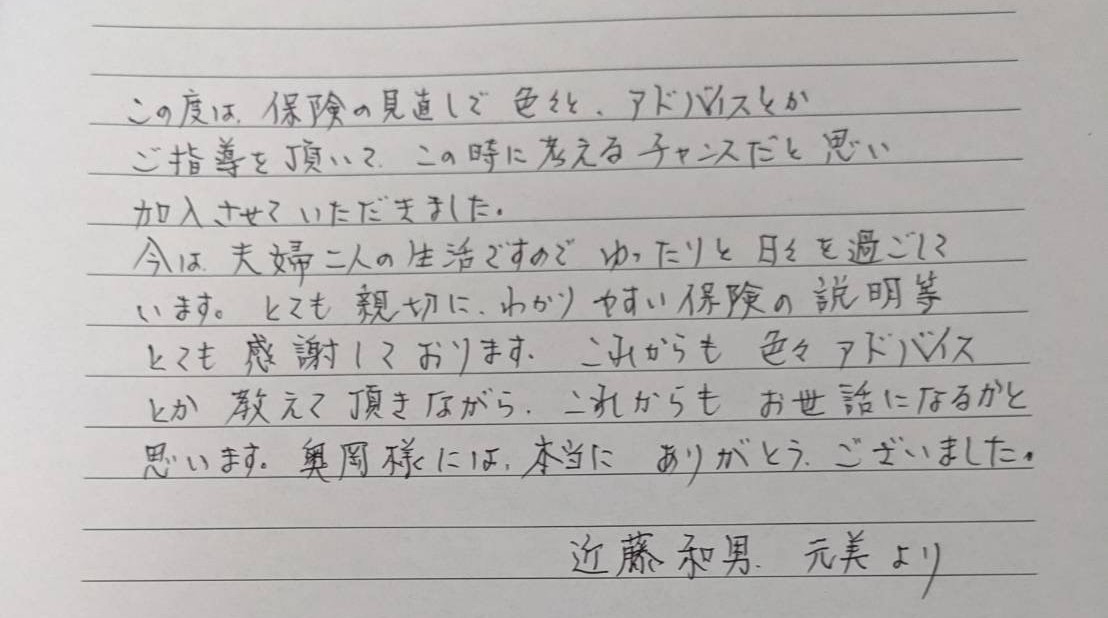 この度は、保険の見直しで 色々と、アドバイスとか
ご指導を頂いて、この時に考えるチャンスだと思い
加入させていただきました。
今は、夫婦二人の生活ですので ゆったりと 日々を過ごして
います。とても 親切に、わかりやすい保険の説明等
とても 感謝しております。これからも 色々アドバイス
とか 教えて頂きながら、これからも お世話になるかと
思います。奥岡様には、本当に ありがとう、ございました。
近藤和男、元美より